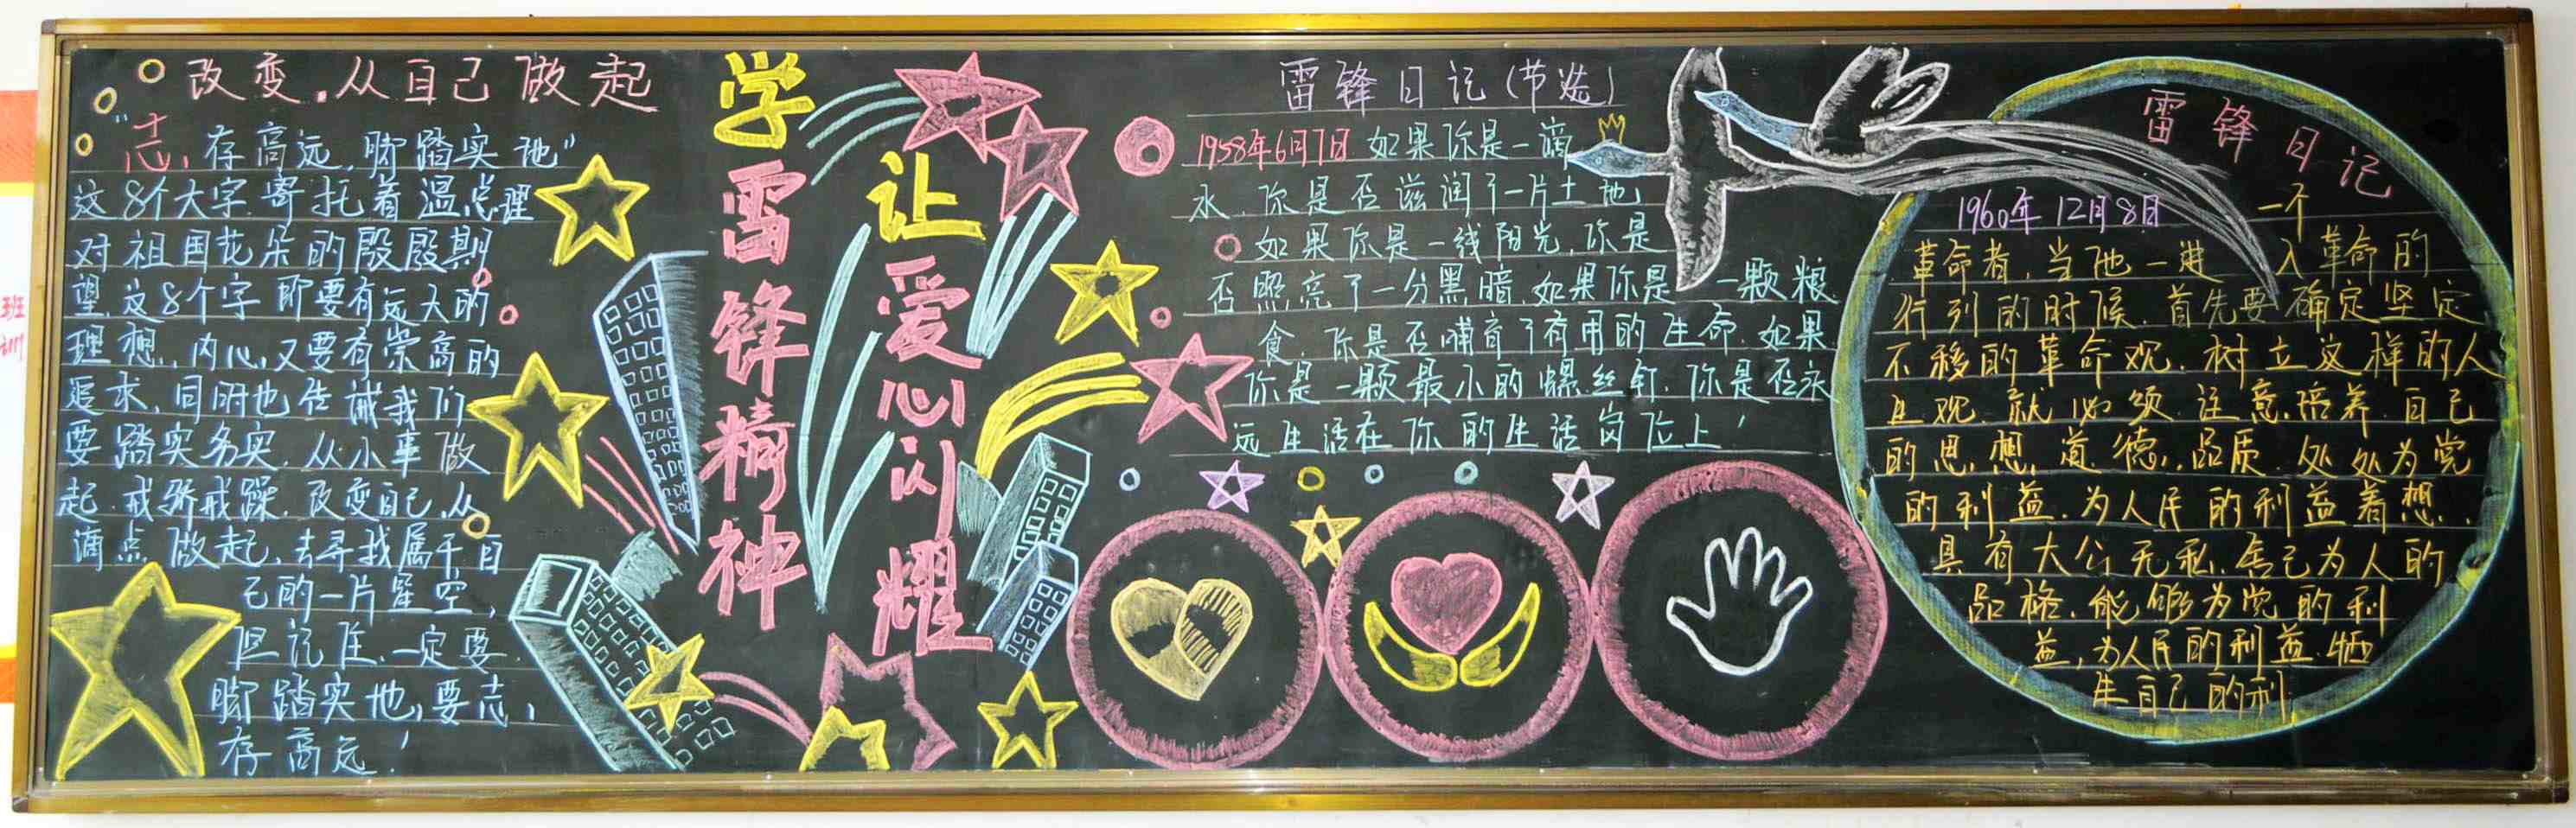 改变.从自己做起
"志存高远,脚踏实地"
这8个大字寄托着温总理
对祖国花朵的殷殷期
望.这8个字即要有远大的
理想,内心又要有崇高的
追求,同时也告诫我们
要踏实务实.从小事做
起.戒骄戒躁.改变自己.从
滴点做起.去寻找属于自
己的一片星空,
但记住.一定要
脚踏实地,要志
存高远!
学雷锋精神
让爱心闪耀
雷锋日记(节选)
1958年6月7日 如果你是一滴
水.你是否滋润了一片土地
如果你是一线阳光.你是
否照亮了一分黑暗.如果你是一颗粮
食.你是否哺育了有用的生命.如果
你是一颗最小的螺丝钉.你是否永
远生活在你的生活岗位上!
雷锋日记
1960年12月8日 一个
革命者.当他一进入革命的
行列的时候.首先要确定坚定
不移的革命观.树立这样的人
生观.就必须注意培养自己
的思想道德品质.处处为党
的利益.为人民的利益着想.
具有大公无私.舍己为人的
品格.能够为党的利
益,为人民的利益.牺
牲自己的利
班
训